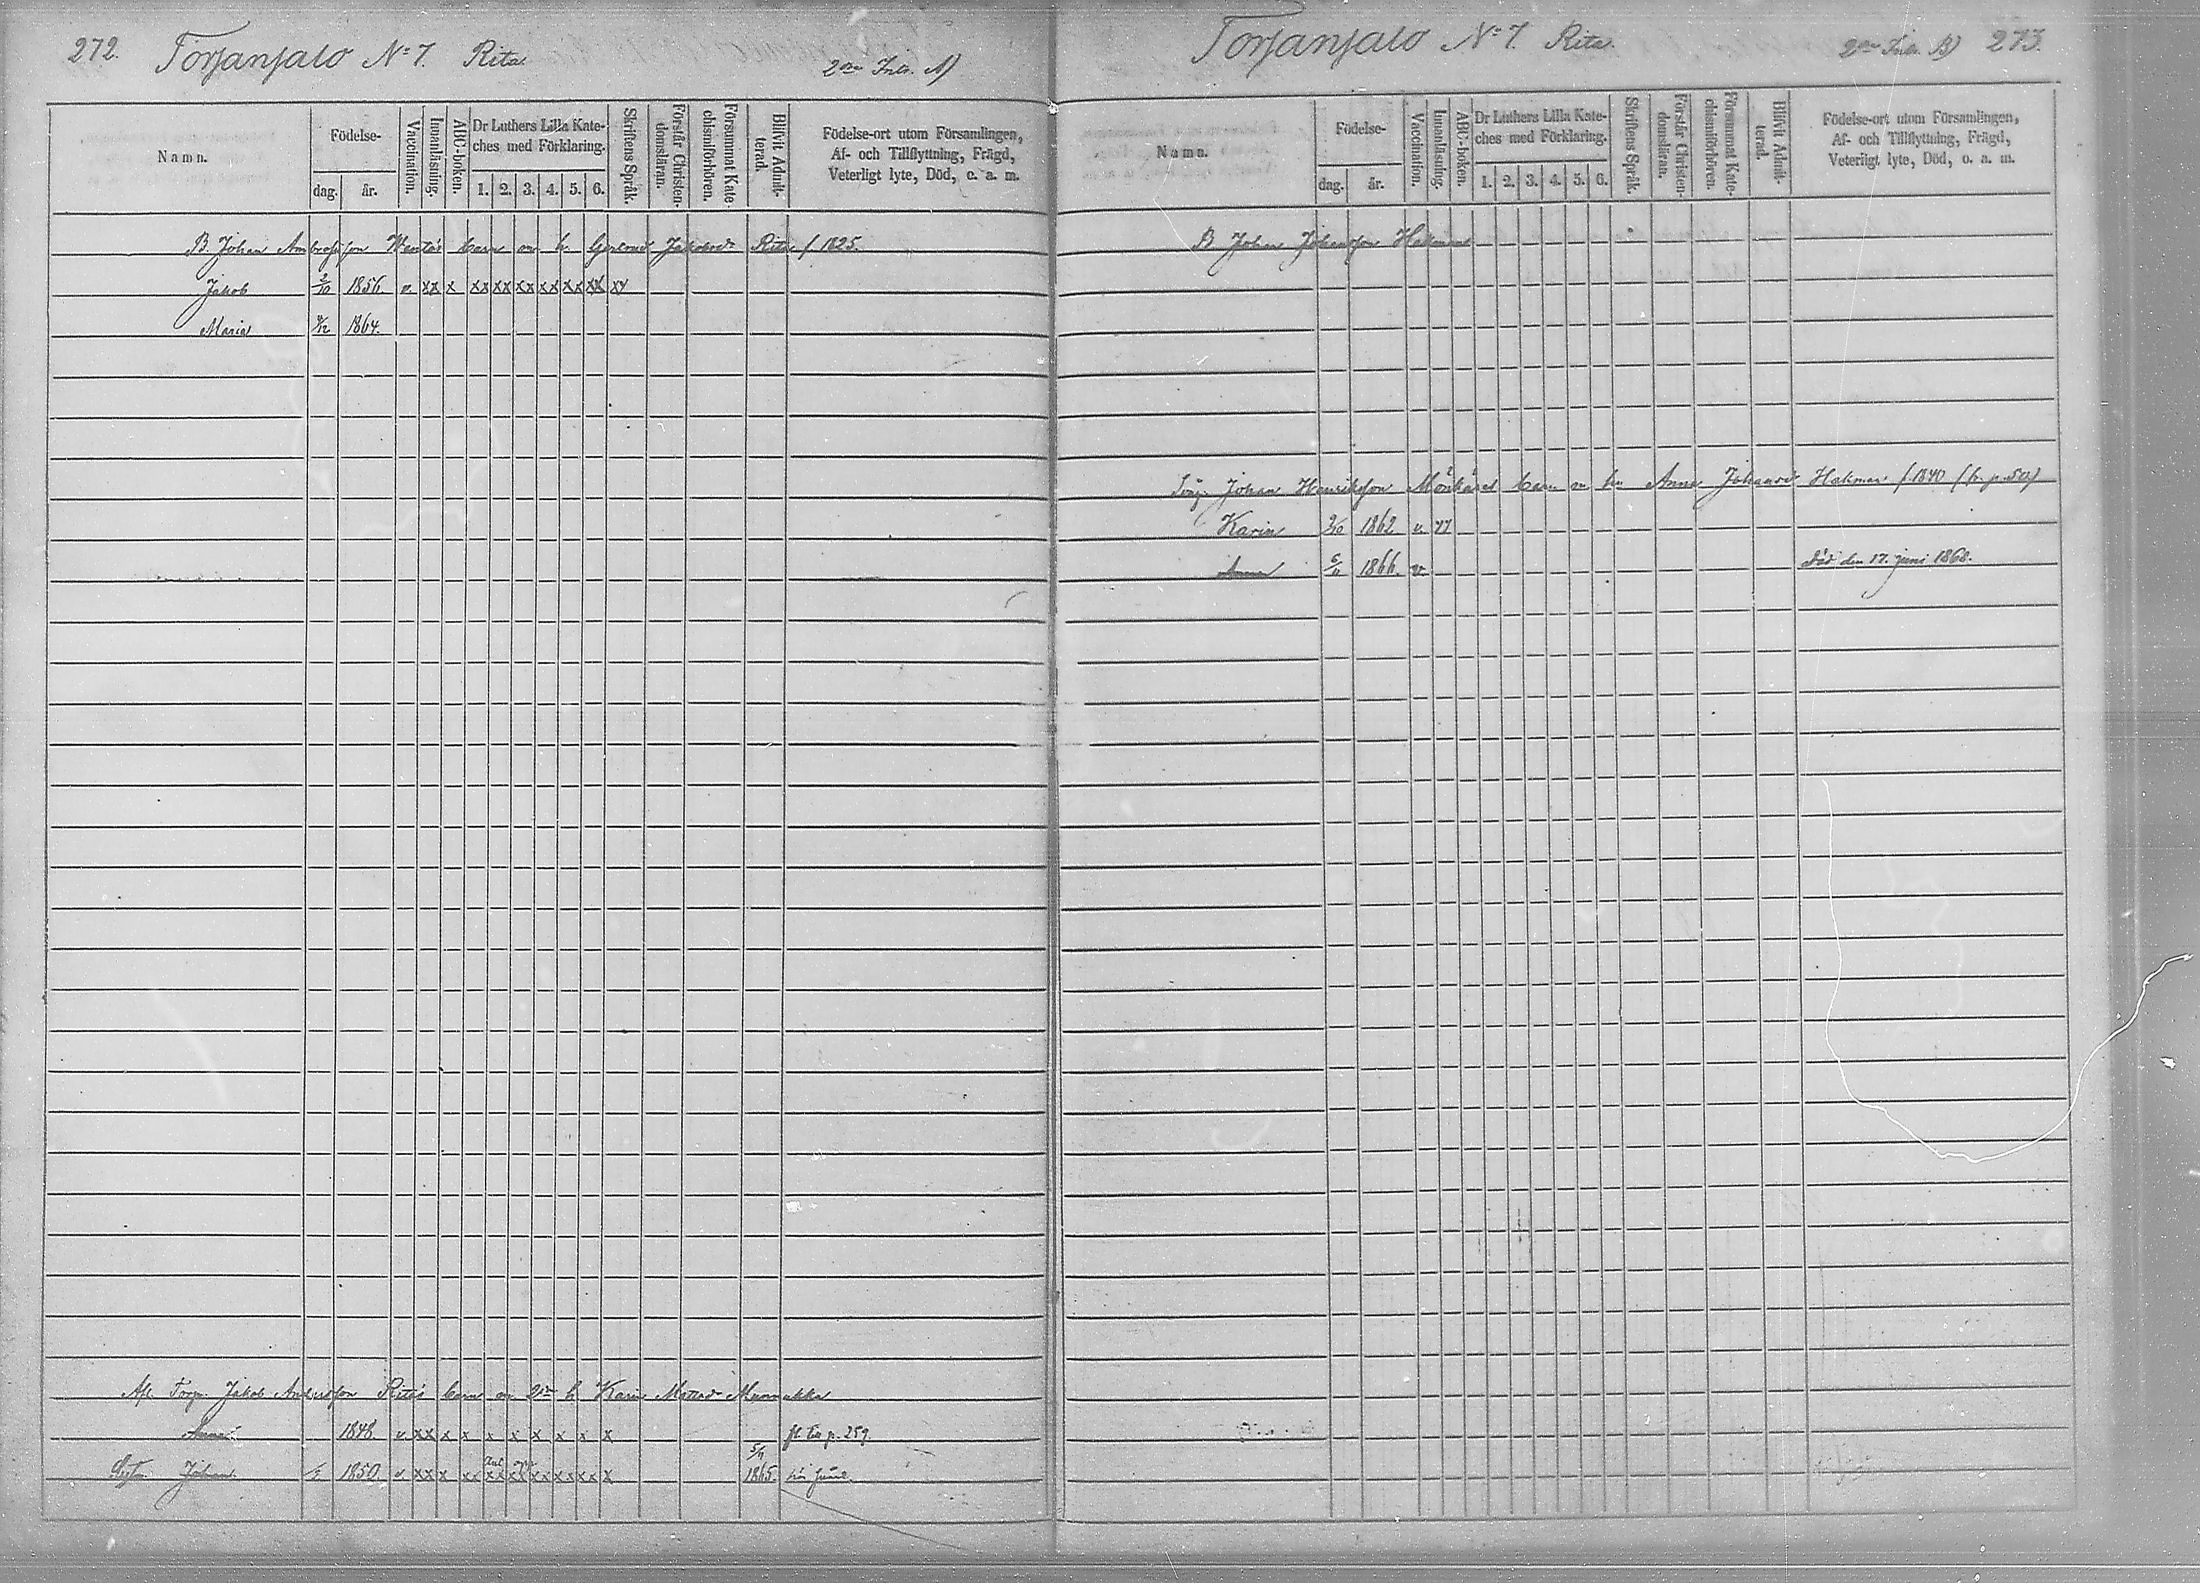 272. Torjansalo No 7. Rita. 2dra Inls. A)
Namn.
Födelse-
dag.
år.
Vaccination.
Innanläsning.
ABC-boken.
Dr Luthers Lilla Kate-
ches med Förklaring.
1. 2. 3. 4. 5. 6.
Skriftens Språk.
Förstår Christen-
domsläran.
Försummat Kate-
chismiförhören.
Blifvit Admit-
terad.
Födelse-ort utom Församlingen,
Af- och Tillflyttning, Frägd,
Veterligt lyte, Död, o. a. m.
B. Johan Ambrosisson barn m. h. Jakobsdr Rita f. 1825.
Jakob 2/10 1856. v. xx x xx xx xx xx xx xx xx
Maria 9/12 1864.
Afl. Torp. Jakob Andersson Rita's barn m. 2dra h. Karin Mattsdr
Anna 1848. v xx x x x x x x x x fl. till p. 259.
Johan 1850. v xx x xx xx xx xx xx xx x 5/11 1865.
Torjansalo No 7. Rita. 2dra Inls. B) 273.
Namn.
Födelse-
dag.
år.
Vaccination.
Innanläsning.
ABC-boken.
Dr Luthers Lilla Kate-
ches med Förklaring.
1. 2. 3. 4. 5. 6.
Skriftens Språk.
Förstår Christen-
domsläran.
Försummat Kate-
chismiförhören.
Blifvit Admit-
terad.
Födelse-ort utom Församlingen,
Af- och Tillflyttning, Frägd,
Veterligt lyte, Död, o. a. m.
B. Johan Johansson Hakman
Johan Henriksson barn m. h. Anna Johansdr Hakman f. 1840
Karin 3/10 1862 v.
Anna 5/11 1866. v. död den 17. juni 1868.